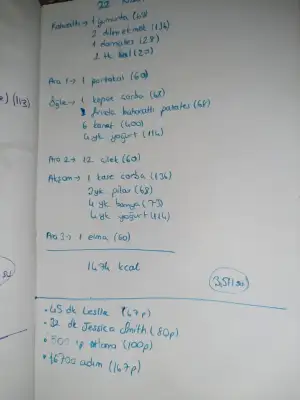 22
Kahvaltı → 1 yumurta (68)
2 dilim etmek (134)
1 domates (28)
2 tk bal (20)
Ara 1 → 1 portakal (60)
Öğle → 1 kepçe çorba (68)
kahvaltı patates (68)
6 kanat (400)
4 yk yoğurt (114)
Ara 2 → 12 çilek (60)
Akşam → 1 kase çorba (134)
2yk pilav (68)
4 yk bamya (73)
4 yk yoğurt (114)
Ara 3 → 1 elma (60)
1474 kcal
3,5lt su
• 45 dk Leslie (67p)
• 32 dk Jessica Smith (80p)
• 500 ip atlama (100p)
• 16700 adım (167p)
) (113)
su